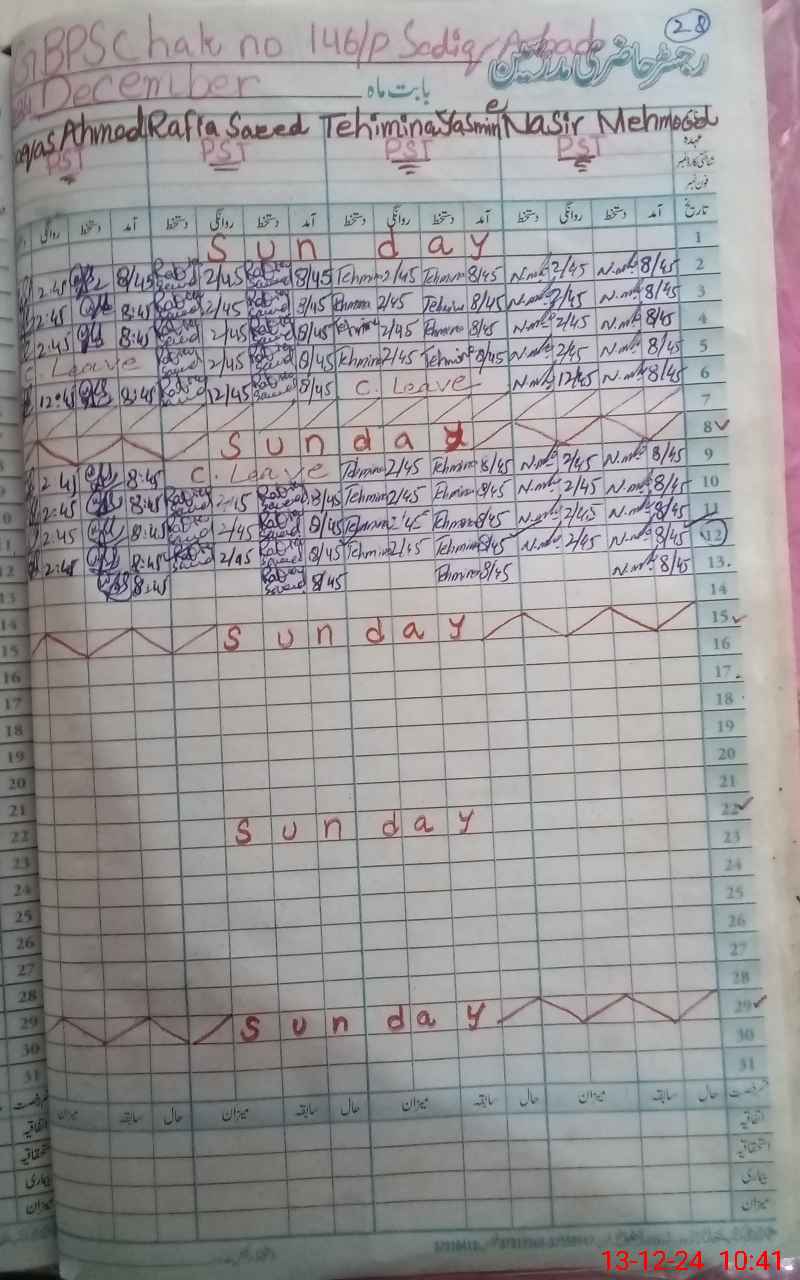 GBPS Chak no 146/P Sadiq Abad
28
رجسٹر حاضری مدرسین
December بابت ماہ
Ahmed Rafia Saeed Tehimina Yasmine Nasir Mehmood
PST PST PST PST
عہدہ
شناختی کارڈ نمبر
فون نمبر
روانگی دستخط آمد دستخط روانگی دستخط آمد دستخط روانگی دستخط آمد دستخط روانگی دستخط آمد تاریخ
Sunday 1
2:45 8/45 Rabia Saeed 2/45 Rabia Saeed 8/45 Tehmina 2/45 Tehmina 8/45 N.m 2/45 N.m 8/45 2
2:45 8:45 Rabia Saeed 2/45 Rabia Saeed 8/45 Tehmina 2/45 Tehmina 8/45 N.m 2/45 N.m 8/45 3
2:45 8:45 Rabia Saeed 2/45 Rabia Saeed 8/45 Tehmina 2/45 Tehmina 8/45 N.m 2/45 N.m 8/45 4
C. Leave Rabia Saeed 2/45 Rabia Saeed 8/45 Tehmina 2/45 Tehmina 8/45 N.m 2/45 N.m 8/45 5
12:45 8:45 Rabia Saeed 12/45 Rabia Saeed 8/45 C. Leave N.m 12/45 N.m 8/45 6
7
Sunday 8
2:45 8:45 C. Leave Tehmina 2/45 Tehmina 8/45 N.m 2/45 N.m 8/45 9
2:45 8:45 Rabia Saeed 2/45 Rabia Saeed 8/45 Tehmina 2/45 Tehmina 8/45 N.m 2/45 N.m 8/45 10
2:45 8:45 Rabia Saeed 2/45 Rabia Saeed 8/45 Tehmina 2/45 Tehmina 8/45 N.m 2/45 N.m 8/45 11
2:45 8:45 Rabia Saeed 2/45 Rabia Saeed 8/45 Tehmina 2/45 Tehmina 8/45 N.m 2/45 N.m 8/45 12
8:45 Rabia Saeed 8/45 Tehmina 8/45 N.m 8/45 13
13 14
14 Sunday 15
15 16
16 17
17 18
18 19
19 20
20 21
21 Sunday 22
22 23
23 24
24 25
25 26
26 27
27 28
28 29
29 Sunday 30
30 31
31
میزان سابقہ حال میزان سابقہ حال میزان سابقہ حال میزان سابقہ حال قسم رخصت
اتفاقیہ اتفاقیہ
استحقاقیہ استحقاقیہ
بیماری بیماری
میزان میزان
13-12-24 10:41